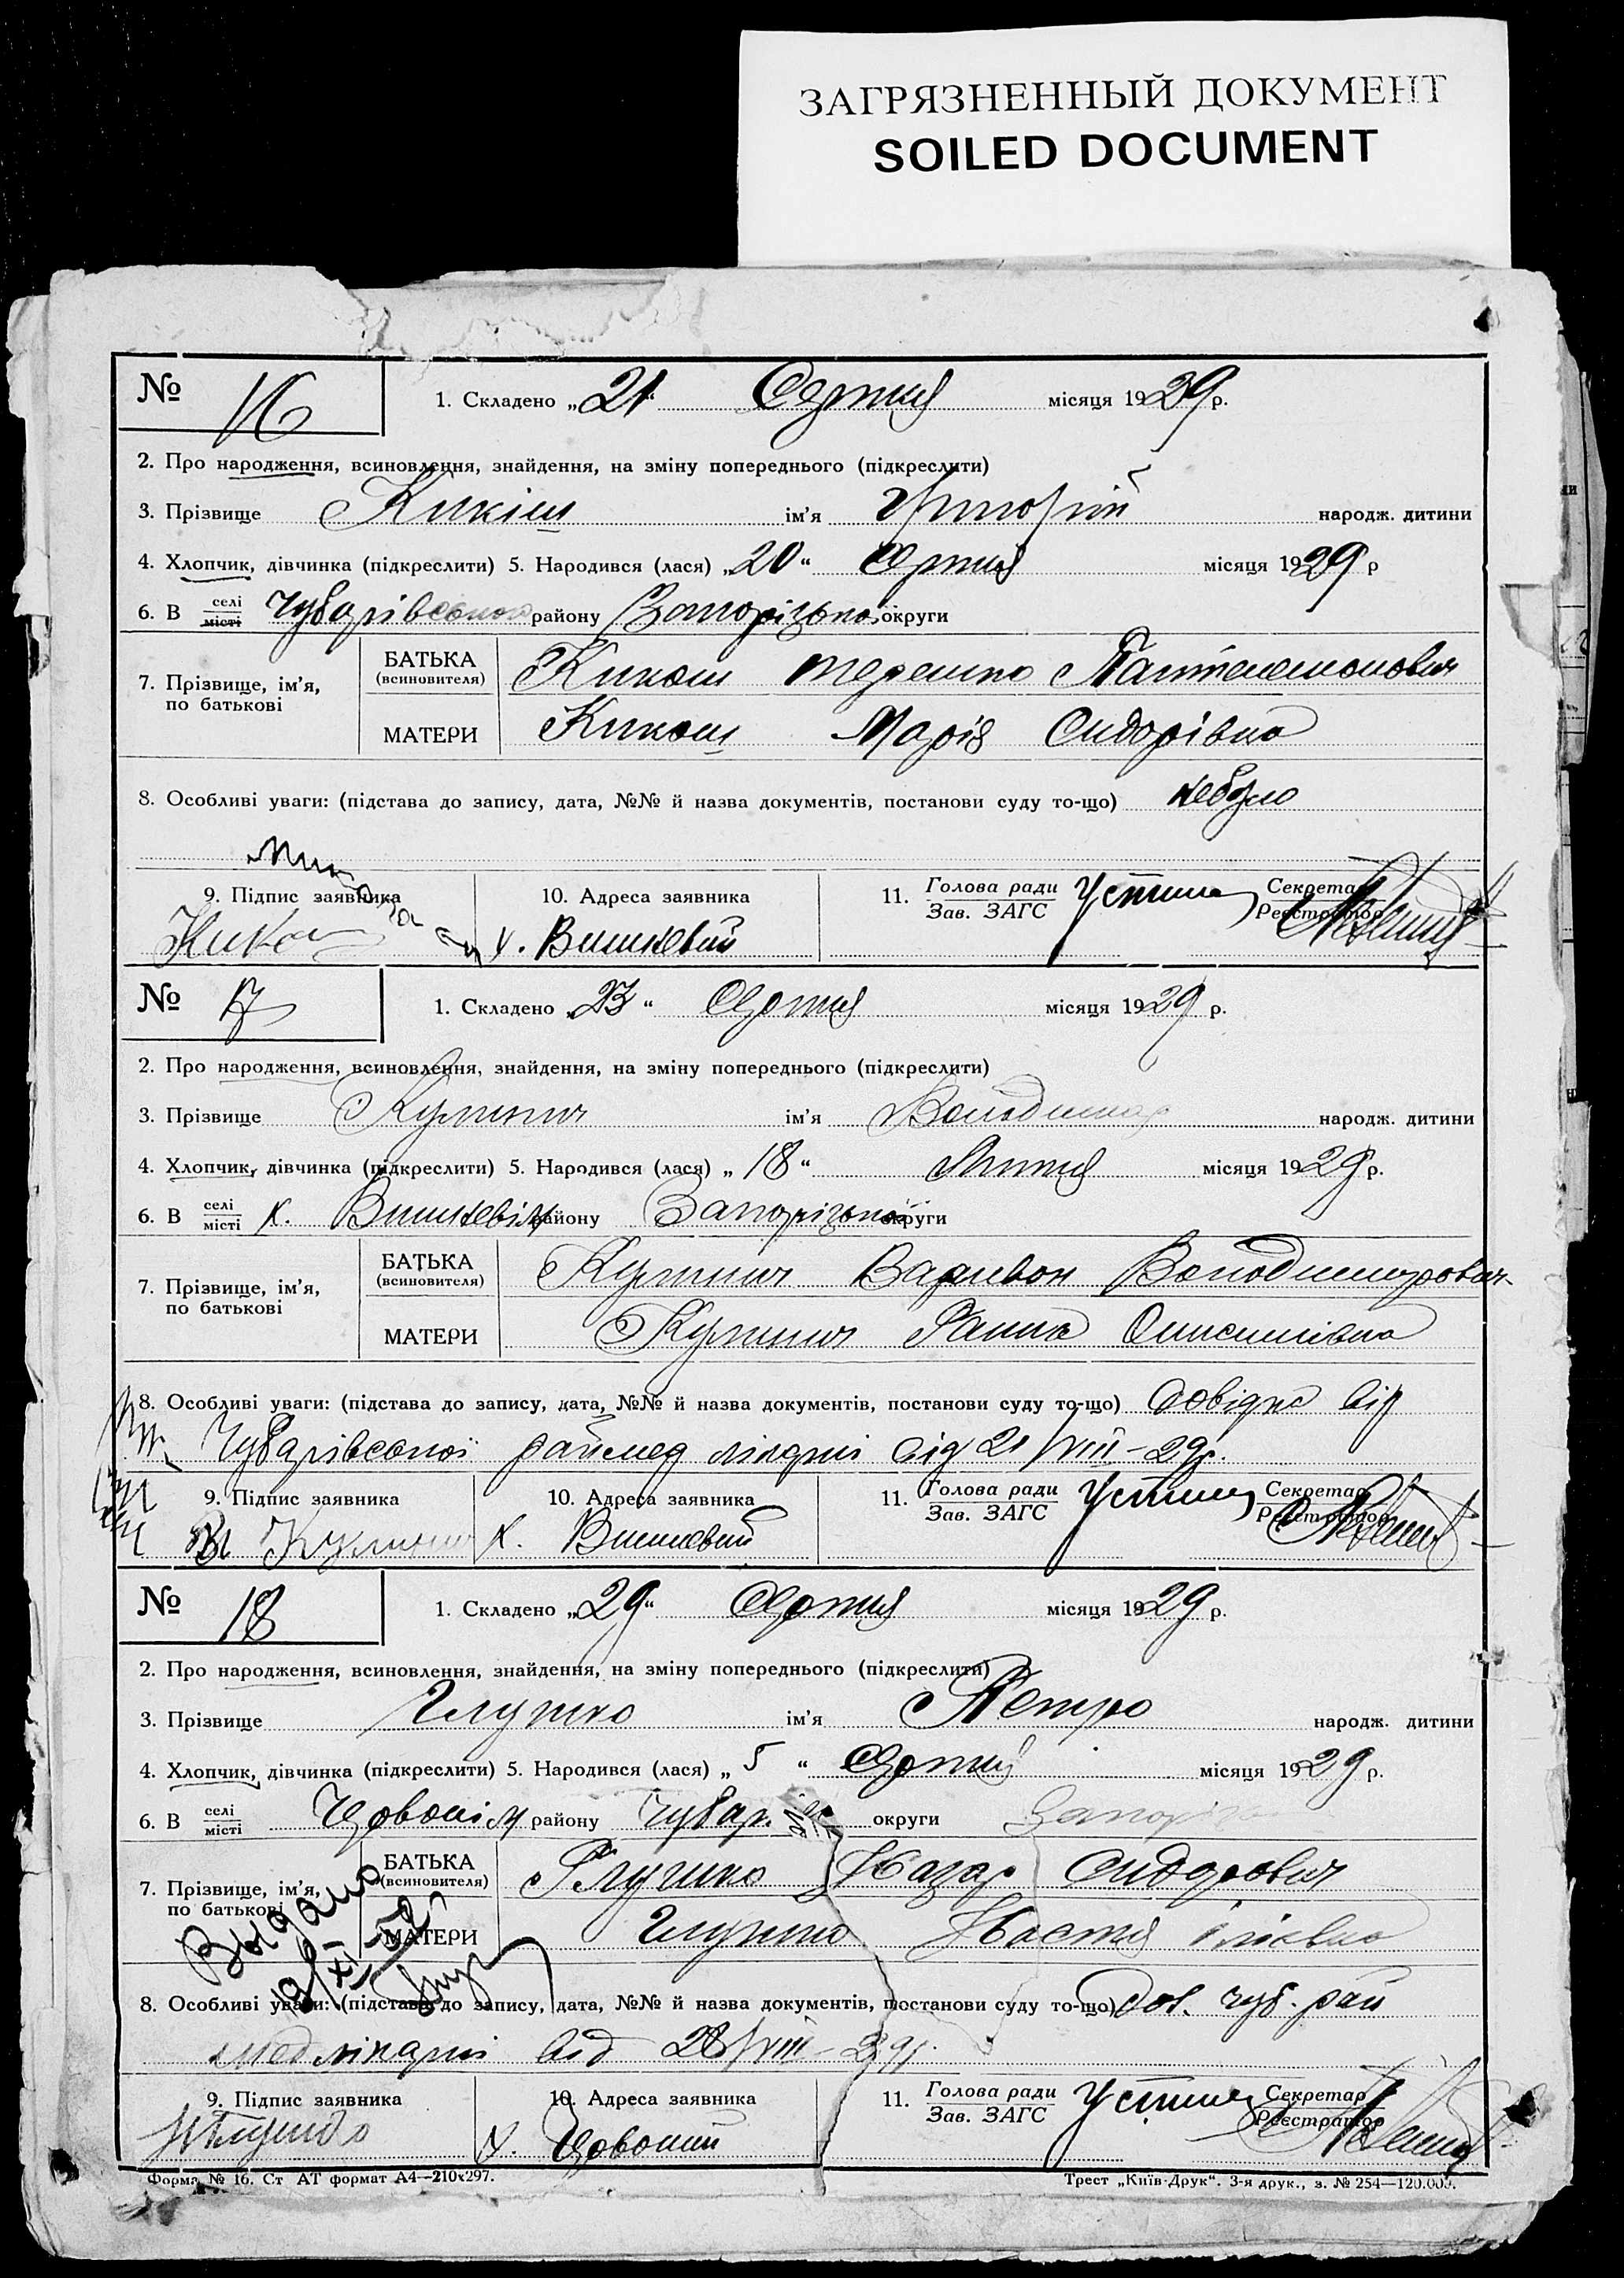 ЗАГРЯЗНЕННЫЙ ДОКУМЕНТ
SOILED DOCUMENT
№ 16
1. Складено „21“ Серпня місяця 1929 р.
2. Про народження, всиновлення, знайдення, на зміну попереднього (підкреслити)
3. Прізвище Кикіш ім'я Григорій народж. дитини
4. Хлопчик, дівчинка (підкреслити) 5. Народився (лася) „20“ Серпня місяця 1929 р
6. В селі місті Чубарівського району Запорізької округи
7. Прізвище, ім'я, по батькові
БАТЬКА (всиновителя) Кикош Терешко Пантелемонович
МАТЕРИ Кикош Марія Сидорівна
8. Особливі уваги: (підстава до запису, дата, №№ й назва документів, постанови суду то-що) небуло
9. Підпис заявника
10. Адреса заявника
11. Голова ради Зав. ЗАГС
Секретар Реєстратор
х. Вишневий
№ 17
1. Складено „23“ Серпня місяця 1929 р.
2. Про народження, всиновлення, знайдення, на зміну попереднього (підкреслити)
3. Прізвище Кулинич ім'я Володимир народж. дитини
4. Хлопчик, дівчинка (підкреслити) 5. Народився (лася) „18“ Липня місяця 1929 р.
6. В селі місті х. Вишневім району Запорізької округи
7. Прізвище, ім'я, по батькові
БАТЬКА (всиновителя) Кулинич Варивон Володимирович
МАТЕРИ Кулинич Ганна Онисимівна
8. Особливі уваги: (підстава до запису, дата, №№ й назва документів, постанови суду то-що) довідка від
Чубарівської раймед лікарні від 21/VIII-29р.
9. Підпис заявника
10. Адреса заявника
11. Голова ради Зав. ЗАГС
Секретар Реєстратор
Кулинич
х. Вишневий
№ 18
1. Складено „29“ Серпня місяця 1929 р.
2. Про народження, всиновлення, знайдення, на зміну попереднього (підкреслити)
3. Прізвище Глушко ім'я Петро народж. дитини
4. Хлопчик, дівчинка (підкреслити) 5. Народився (лася) „5“ Серпня місяця 1929 р.
6. В селі місті району Чубар. округи Запоріз
7. Прізвище, ім'я, по батькові
БАТЬКА (всиновителя) Глушко Назар Сидорович
МАТЕРИ Глушко Настя Ілієвна
Выдано
8. Особливі уваги: (підстава до запису, дата, №№ й назва документів, постанови суду то-що) дов. чуб. рай
мед лікарні від 28/VIII-29р.
9. Підпис заявника
10. Адреса заявника
11. Голова ради Зав. ЗАГС
Секретар Реєстратор
Глушко
Форма № 16. Ст АТ формат А4—210х297.
Трест „Київ-Друк“. 3-я друк., з. № 254—120.000.